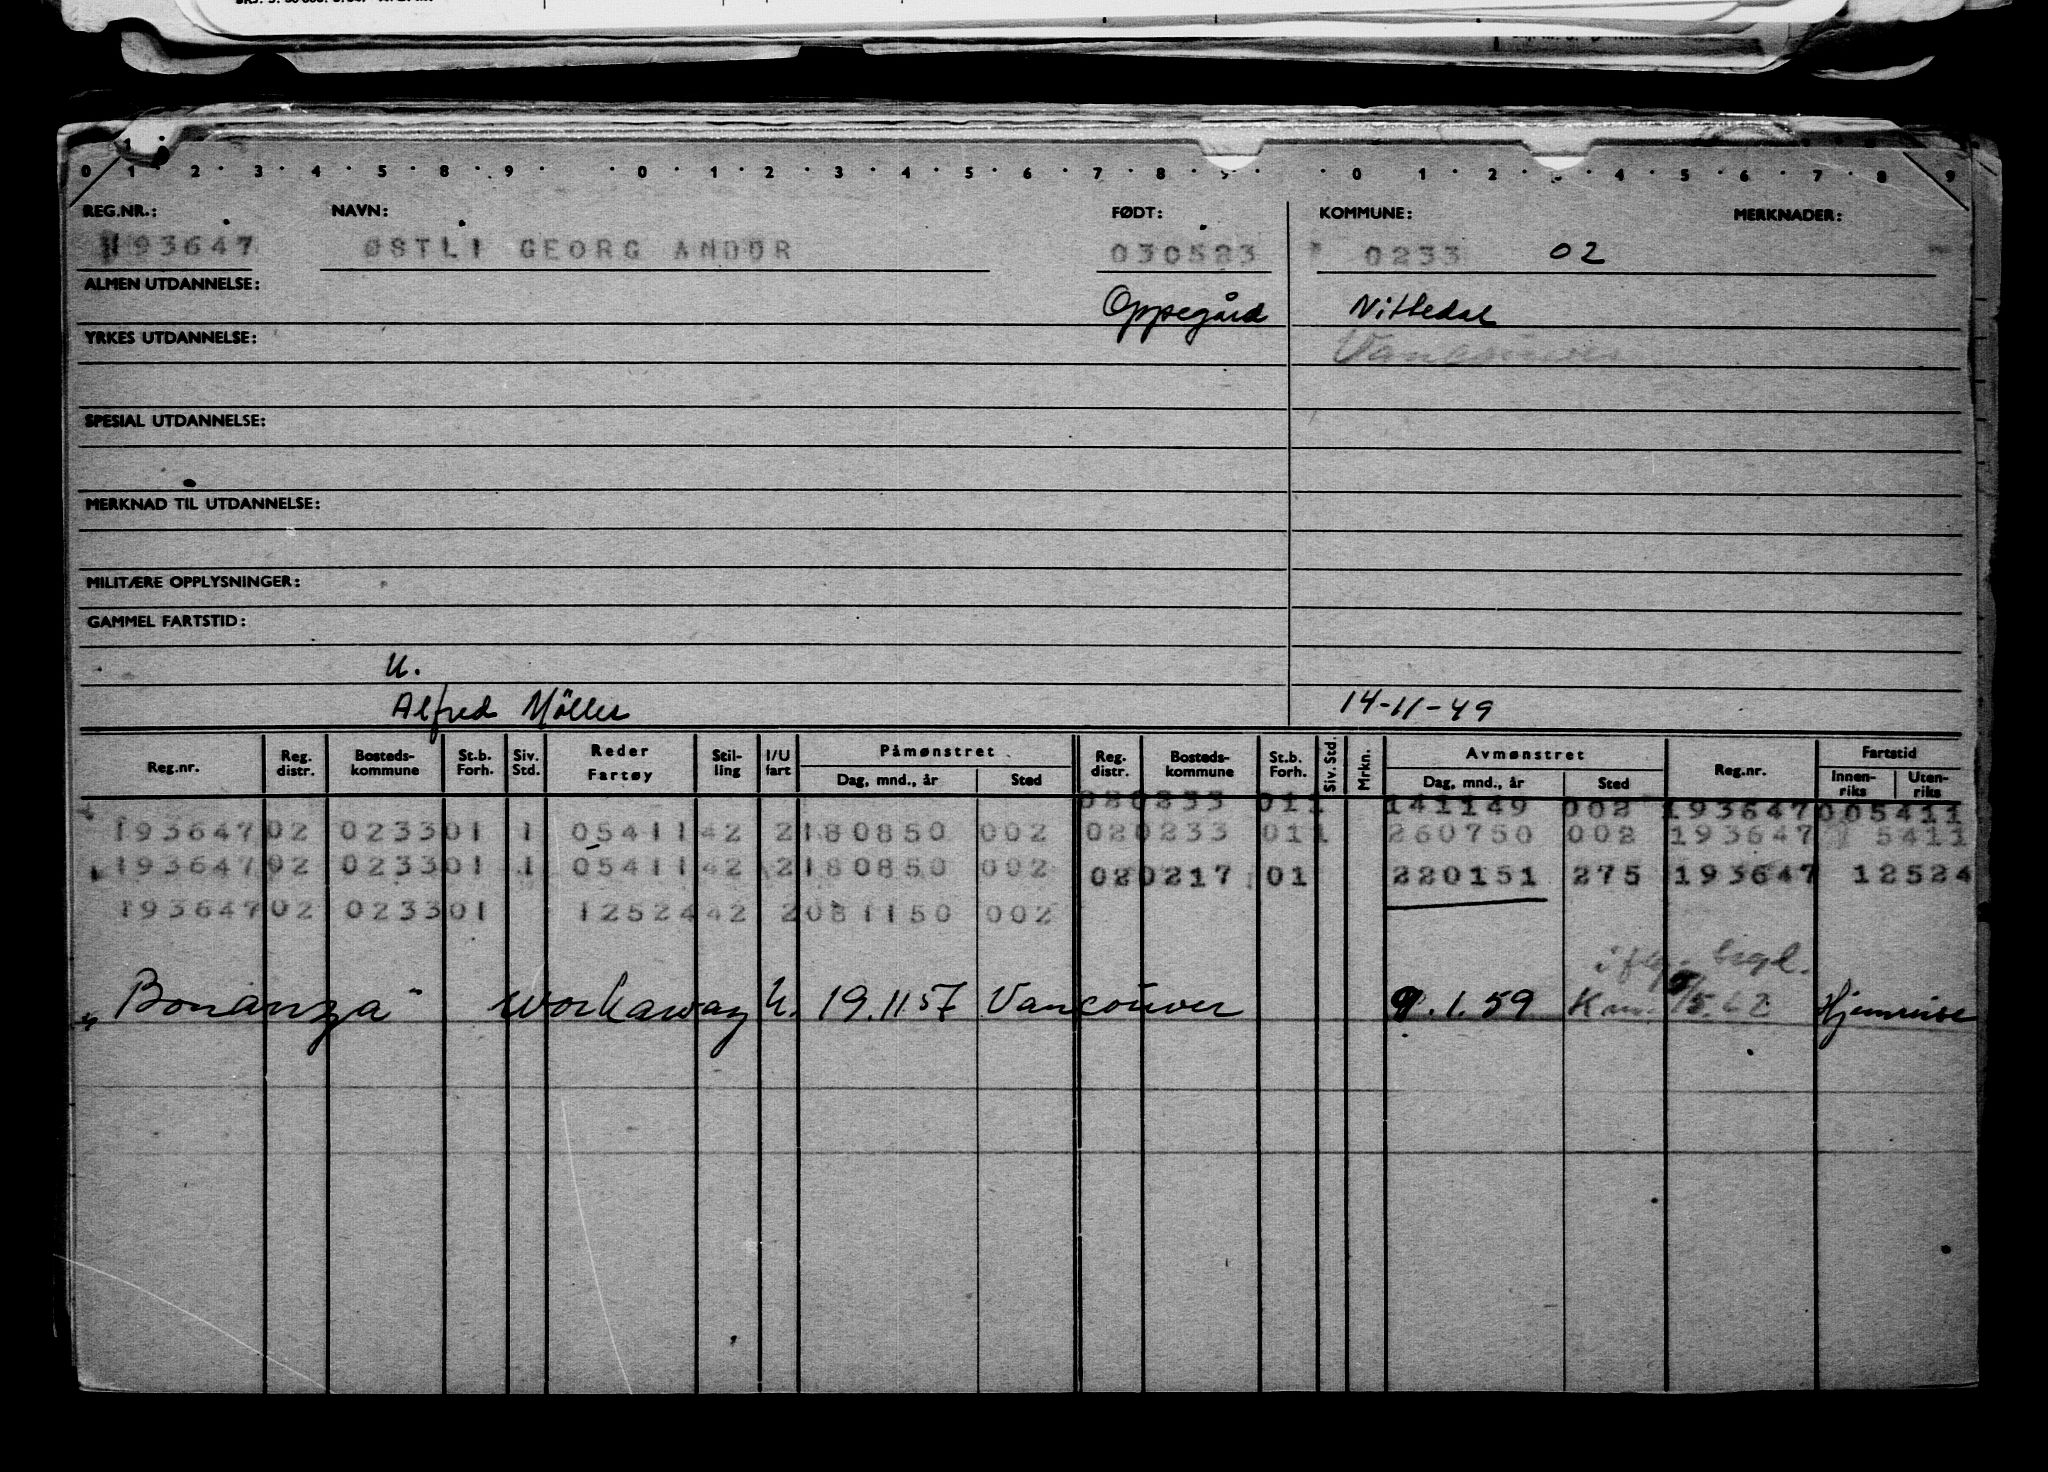 0 1 2 3 4 5 8 9 0 1 2 3 4 5 6 7 8 9 0 1 2 3 4 5 6 7 8 9
REG.NR.: NAVN: FØDT: KOMMUNE: MERKNADER:
193647 ØSTLI GEORG ANDOR 030523 0233 02
ALMEN UTDANNELSE:
Oppegård Nittedal
YRKES UTDANNELSE:
Vancouver
SPESIAL UTDANNELSE:
MERKNAD TIL UTDANNELSE:
MILITÆRE OPPLYSNINGER:
GAMMEL FARTSTID:
U.
Alfred Möller 14-11-49
Reg.nr. Reg. distr. Bosteds-kommune St.b. Forh. Siv. Std. Reder Fartøy Stil-ling I/U fart Påmønstret Dag, mnd., år Sted Reg. distr. Bosteds-kommune St.b. Forh. Siv. Std. Mrkn. Avmønstret Dag, mnd., år Sted Reg.nr. Fartstid Innen-riks Uten-riks
020233 011 141149 002 193647 005411
193647 02 0233 01 1 05411 42 2 180850 002 020233 011 260750 002 193647 5411
193647 02 0233 01 1 05411 42 2 180850 002 020217 01 220151 275 193647 12524
193647 02 0233 01 12524 42 2 081150 002
i flg. begl.
"Bonanza" workaway U. 19.11 57 Vancouver 9.1.59 /5.62 Hjemreise